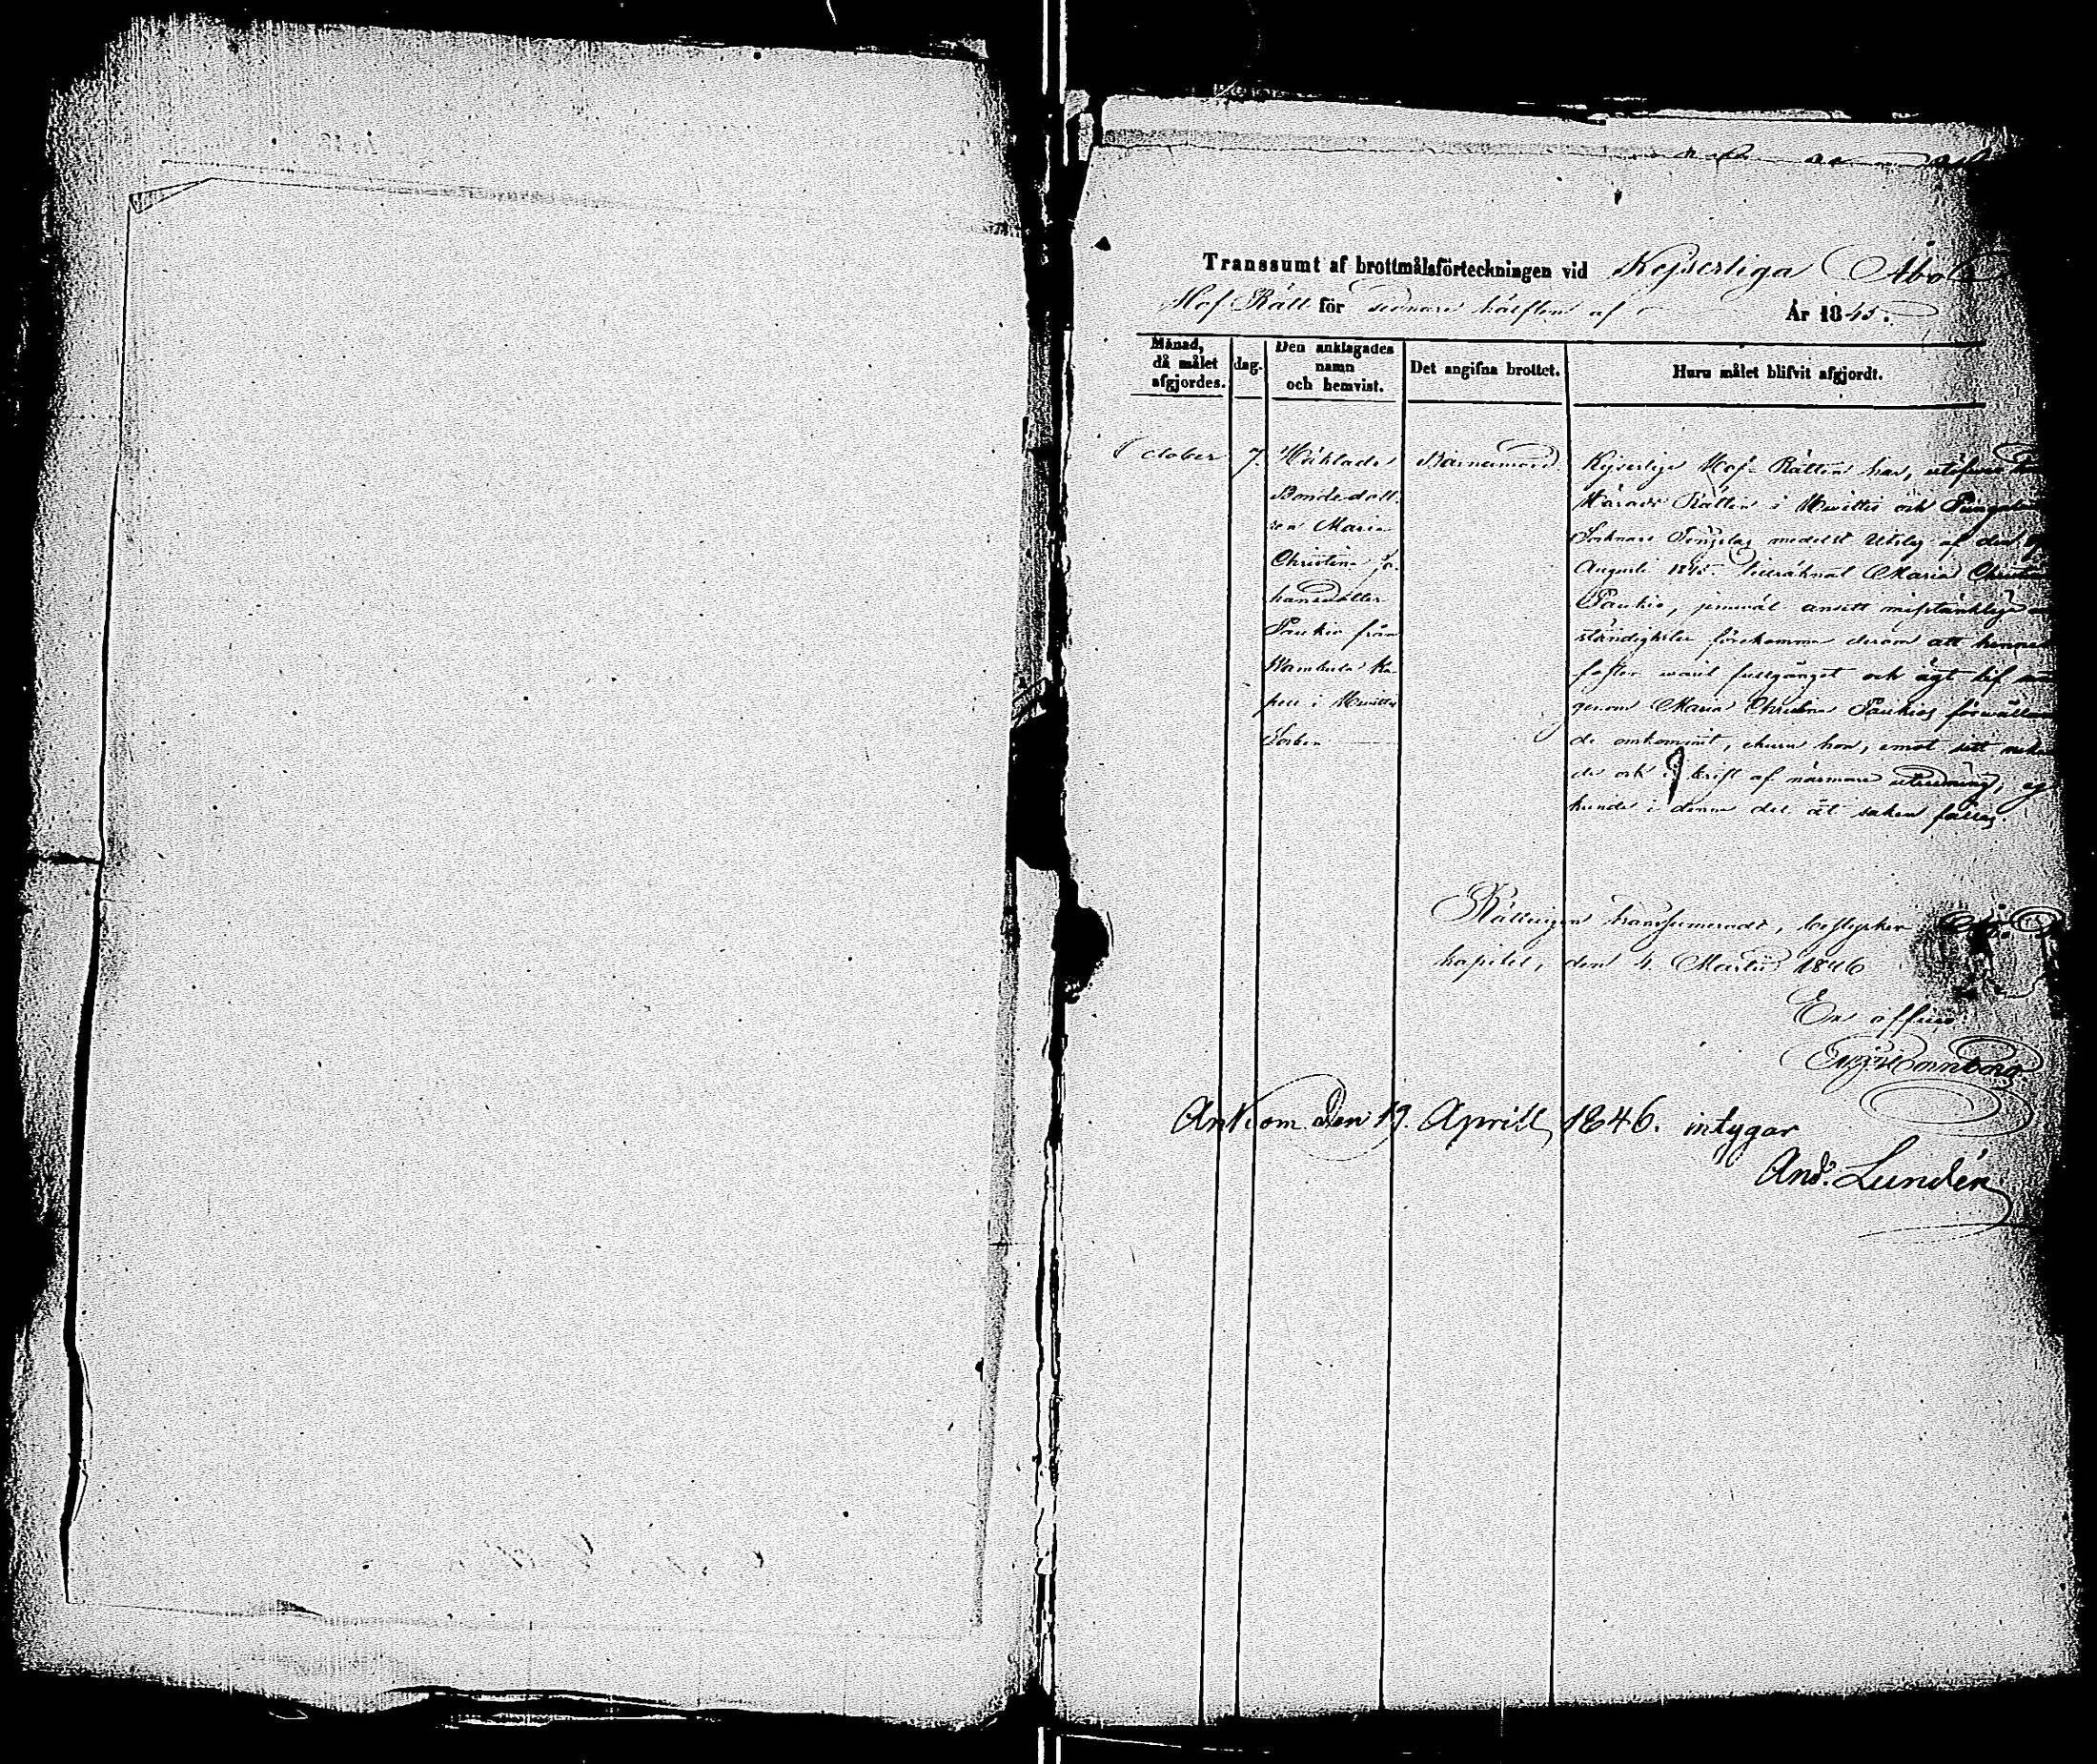 Transsumt af brottmålsförteckningen vid Kejserliga Åbo
Hof Rätt för sednare hälften af År 1845.
Månad, då målet afgjordes.
dag.
Den anklagades namn och hemvist.
Det angifna brottet.
Huru målet blifvit afgjordt.
October
7.
Häktade
Bondedott
ren Maria
Christina Jo
hansdotter
Paukio från
Kambula Ka
pell i Hwittis
Socken
Barnamord
Kejserliga Hof-Rätten har,
Härads Rätten i Hwittis och
Socknars Tingslag medelst Utslag af den
Augusti 1845 Maria Christina
Paukio, jemwäl ansett misstänklige
ständigheter förekomma derom att hennes
foster warit fullgånget och ägt lif
genom Maria Christina Paukios förwållan
de omkommit, churu hon, emot sitt nekan
de och i brist af närmare utredning, ej
kunde i denna del åt saken fällas.
Rätteligen transumeradt, betyger
kapitel, den 4. Martii 1846
Ex officio
Ankom den 19. Aprill 1846. intygar
And: Lundén